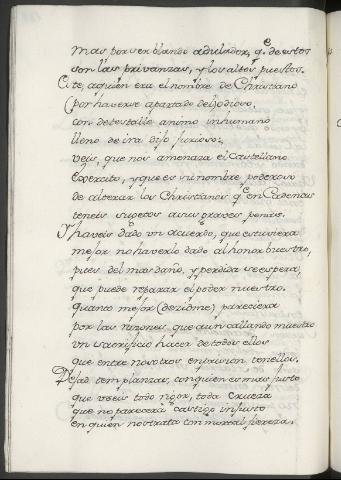 mas por ser blando adulador, q.e de estos
son las privanzas, y los altos puestos.
Este, a quien era el nombre de Christiano
(por haverse apartado del) odioso,
con detestable animo inhumano
lleno de ira dijo furioso:
veis, que nos amenaza el Castellano
Exercito, y que es su nombre poderoso
de alterar los Christianos q.e en Cadenas
teneis sugetos a sus graves penas.
Y haveis dado un acuerdo, que estuviera
mejor no haverlo dado al honor vuestro,
pues del mas daño, y perdida se espera,
que puede reparar el poder nuestro.
Quanto mejor (dezidme) pareciera
por las razones que aun callando muestro
un sacrificio hacer de todos ellos
que entre nosotros
Dejad templanzas, con quien es mas justo
que useis todo rigor, toda crueza
que no parecerá castigo injusto
en quien nos trata con mortal fiereza.